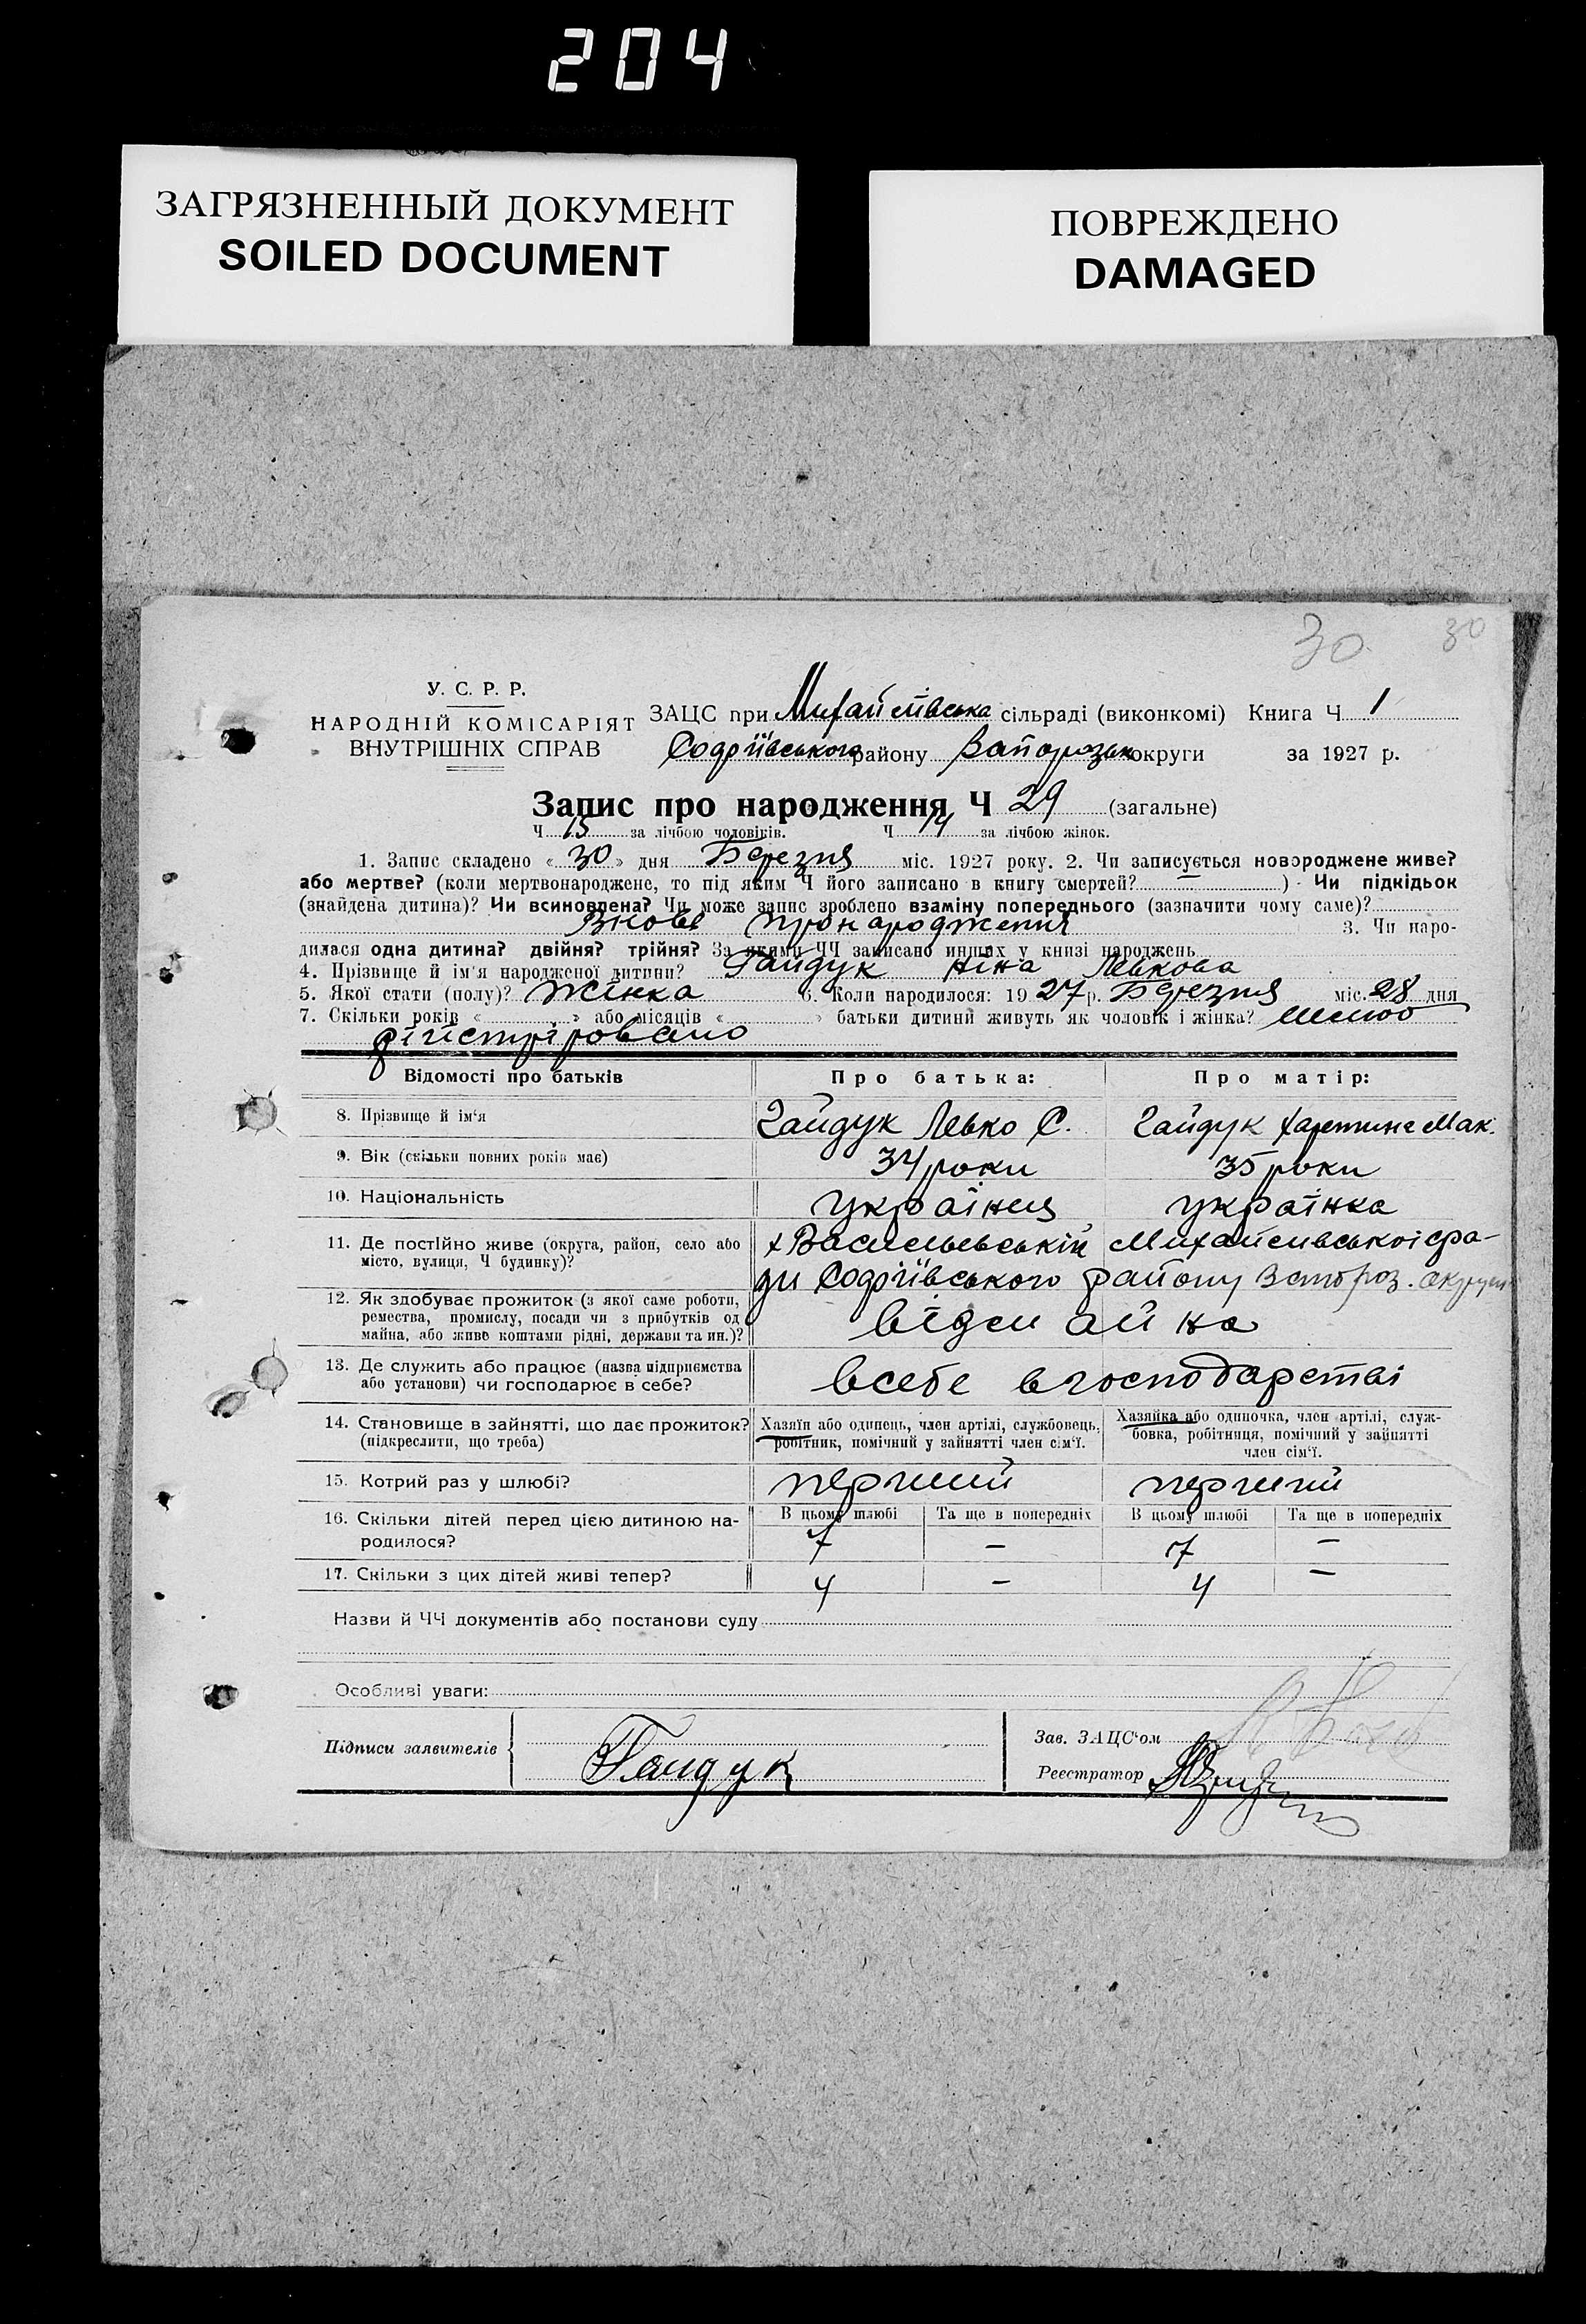 204
ЗАГРЯЗНЕННЫЙ ДОКУМЕНТ
SOILED DOCUMENT
ПОВРЕЖДЕНО
DAMAGED
30 30
У. С. Р. Р.
НАРОДНІЙ КОМІСАРІЯТ
ВНУТРІШНІХ СПРАВ
ЗАЦС при Михайлівська сільраді (виконкомі) Книга Ч 1
Софіївського району Запорозьк округи за 1927 р.
Запис про народження Ч 29 (загальне)
Ч 15 за лічбою чоловіків. Ч 14 за лічбою жінок.
1. Запис складено « 30 » дня Березня міс. 1927 року. 2. Чи записується новороджене живе?
або мертве? (коли мертвонароджене, то під яким Ч його записано в книгу смертей? — ) Чи підкідьок
(знайдена дитина)? Чи всиновлена? Чи може запис зроблено взаміну попереднього (зазначити чому саме)?
Вновь про народження 3. Чи наро-
дилася одна дитина? двійня? трійня? За якими ЧЧ записано инших у книзі народжень
4. Прізвище й ім'я народженої дитини? Гайдук Ніна Левкова
5. Якої стати (полу)? Жінка 6. Коли народилося: 19 27 р. Березня міс. 28 дня
7. Скільки років « » або місяців « » батьки дитини живуть як чоловік і жінка?
Відомості про батьків Про батька: Про матір:
8. Прізвище й ім'я Гайдук Левко С. Гайдук Харетина Мак.
9. Вік (скільки повних років має) 34 роки 35 роки
10. Національність українця українка
11. Де постійно живе (округа, район, село або
місто, вулиця, Ч будинку)?
х Васильевській Михайливської сра-
ди Софіївського району Запороз. округи
12. Як здобуває прожиток (з якої саме роботи,
ремества, промислу, посади чи з прибутків од
майна, або живе коштами рідні, держави та ин.)?
13. Де служить або працює (назва підприємства
або установи) чи господарює в себе?
всебе вгосподарстві
14. Становище в зайнятті, що дає прожиток?
(підкреслити, що треба)
Хазяїн або одинець, член артілі, службовець,
робітник, помічний у зайнятті член сім'ї.
Хазяйка або одиночка, член артілі, служ-
бовка, робітниця, помічний у зайнятті
член сім'ї.
15. Котрий раз у шлюбі? перший перший
16. Скільки дітей перед цією дитиною на-
родилося?
В цьому шлюбі Та ще в попередніх В цьому шлюбі Та ще в попередніх
7 — 7 —
17. Скільки з цих дітей живі тепер? 4 — 4 —
Назви й ЧЧ документів або постанови суду
Особливі уваги:
Підписи заявителів Гайдук
Зав. ЗАЦС'ом
Реєстратор